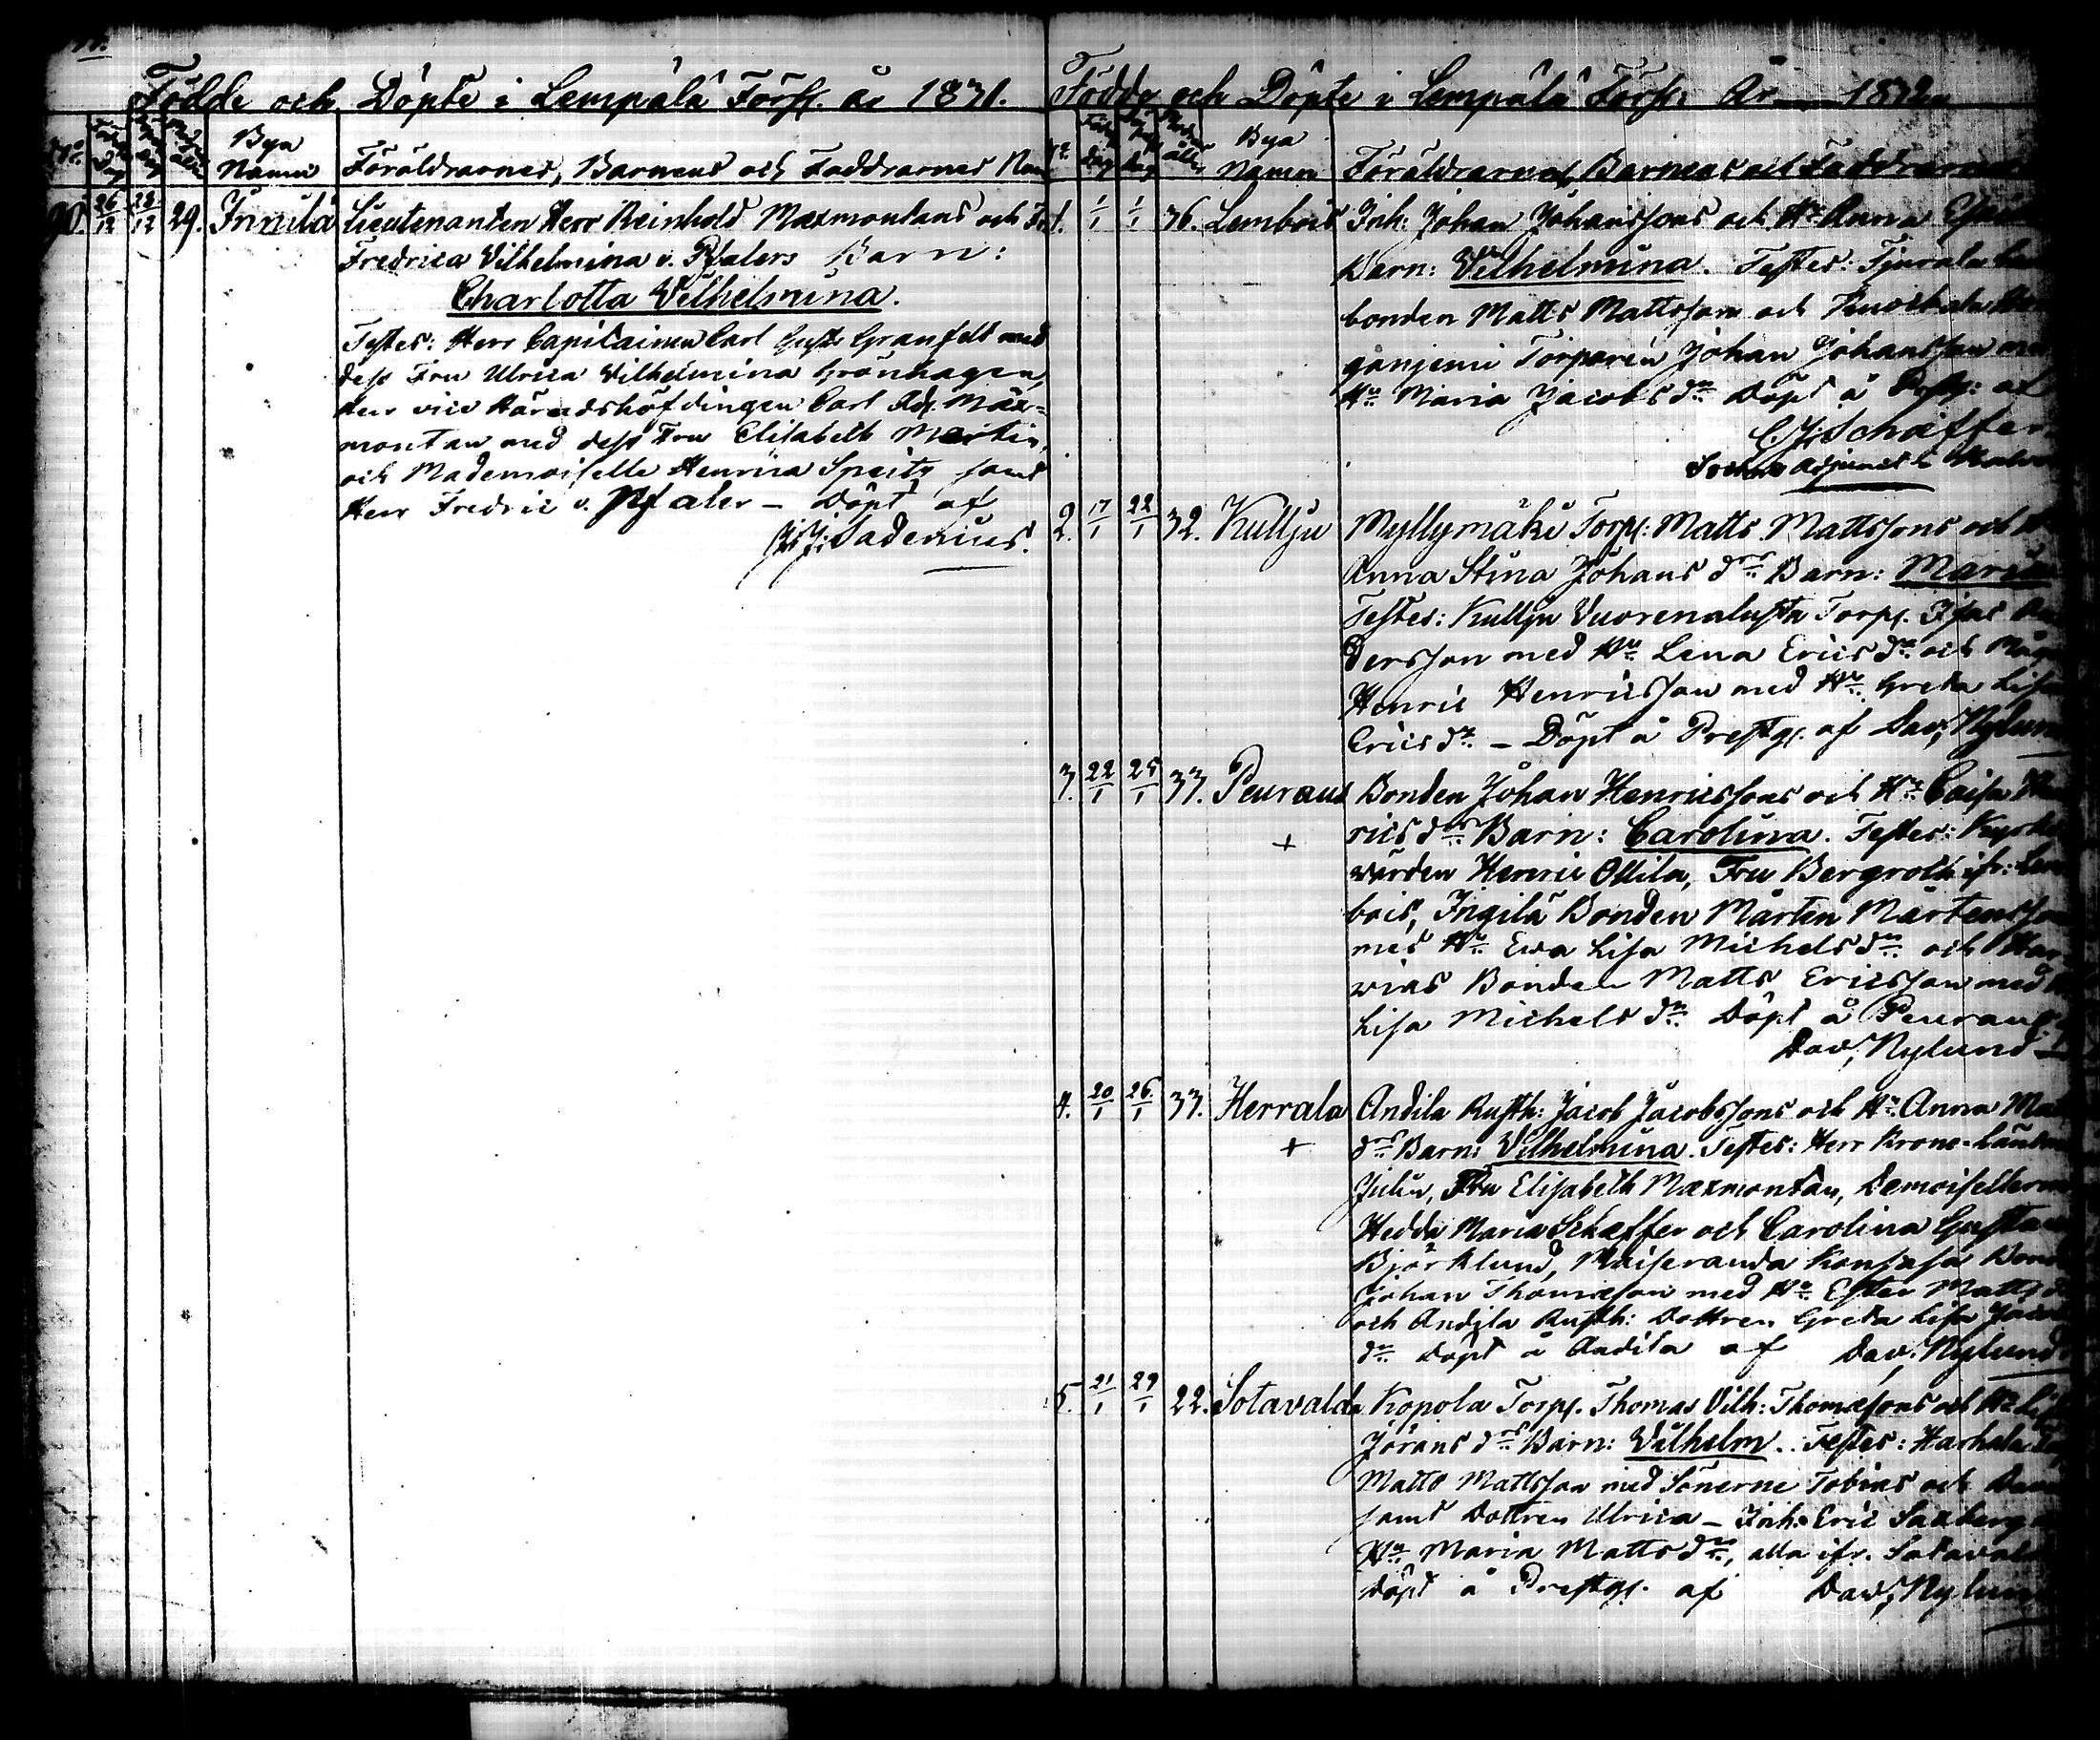 Födde och Döpte i Lempälä Förs. år 1831.
No Född Dag Döpt Dag Modrens ålder Bya Namn Föräldrarnes, Barnens och Faddrarnes Nam
90. 26/12 28/12 29. Innilä Lieutenanten Herr Reinhold Mæxmontans och Fr.
Fredrica Vilhelmina v. Pfalers Barn:
Charlotta Vilhelmina.
Testes: Herr Capitainen Carl Gust. Granfelt med
dess Fru Ulrica Vilhelmina Grönhagen,
Herr vice Häradshöfdingen Carl Adj. Mæx-
montan med dess Fru Elisabeth Martin,
och Mademoiselle Henrica Speitz samt
Herr Fredric v. Pfaler - Döpt af
Sadenius.
Födde och Döpte i Lempälä Förs. År 1832.
No Född dag Döpt dag Modrens ålder Bya Namn Föräldrarnes, Barnens och Faddrarnes
1. 1/1 1/1 36. Lembois Inh: Johan Johanssons och Hu Anna
Barn: Vilhelmina. Testes:
bonden Matts Mattsson och
ganjemi Torparen Johan Johansson med
Hu Maria Jacobs dr Döpt å Prestg: af
C.J. Schæffer
Sockne Adjunct i
2. 17/1 22/1 32. Kullju Myllymäki Torp: Matts Mattssons och H
Anna Stina Johans drs Barn: Maria
Testes: Kullju Vuorenalusta Torp. Isac An
dersson med Hu Lena Erics dr och
Henric Henricsson med Hu Greta Lisa
Erics dr - Döpt å Prestg. af Dav; Nylund
3. 22/1 25/1 33. Peuraus Bonden Johan Henricssons och Hu Caisa Hen
+ rics drs Barn: Carolina. Testes: Kyrko
värden Henric Ollila, Fru Bergroth ifr: Lem
bois, Ingilä Bonden Mårten Mårtensson
med Hu Eva Lisa Michels dr och
Bonden Matts Ericsson med H
Lisa Michels dr Döpt å Peuraus
Dav; Nylund
4. 20/1 26/1 33. Herrala Andila Rusth: Jacob Jacobssons och Hu Anna Mat
+ drs Barn: Vilhelmina. Testes: Herr Krono-Länsm
Julin, Fru Elisabeth Mæxmontan, Demoisellerne
Hedda Maria Schæffer och Carolina Gustava
Björklund, Moiseranda Konsasa Bond
Johan Thomæson med Hu Ester Matts d
och Andila Rusth: Dottren Greta Lisa Jacob
dr Döpt å Andila af Dav. Nylund
5. 21/1 29/1 22. Sotavalda Kopola Torp. Thomas Vilh: Thomæsons och Hu
Jörans drs Barn: Vilhelm. Testes: Harhala
Matts Mattsson med Sönerne Tobias och
samt Dottren Ulrica - Inh: Eric Saxberg
Hu Maria Matts dr, alla ifr. Sotavald
Döpt å Prestg. af Dav; Nylund